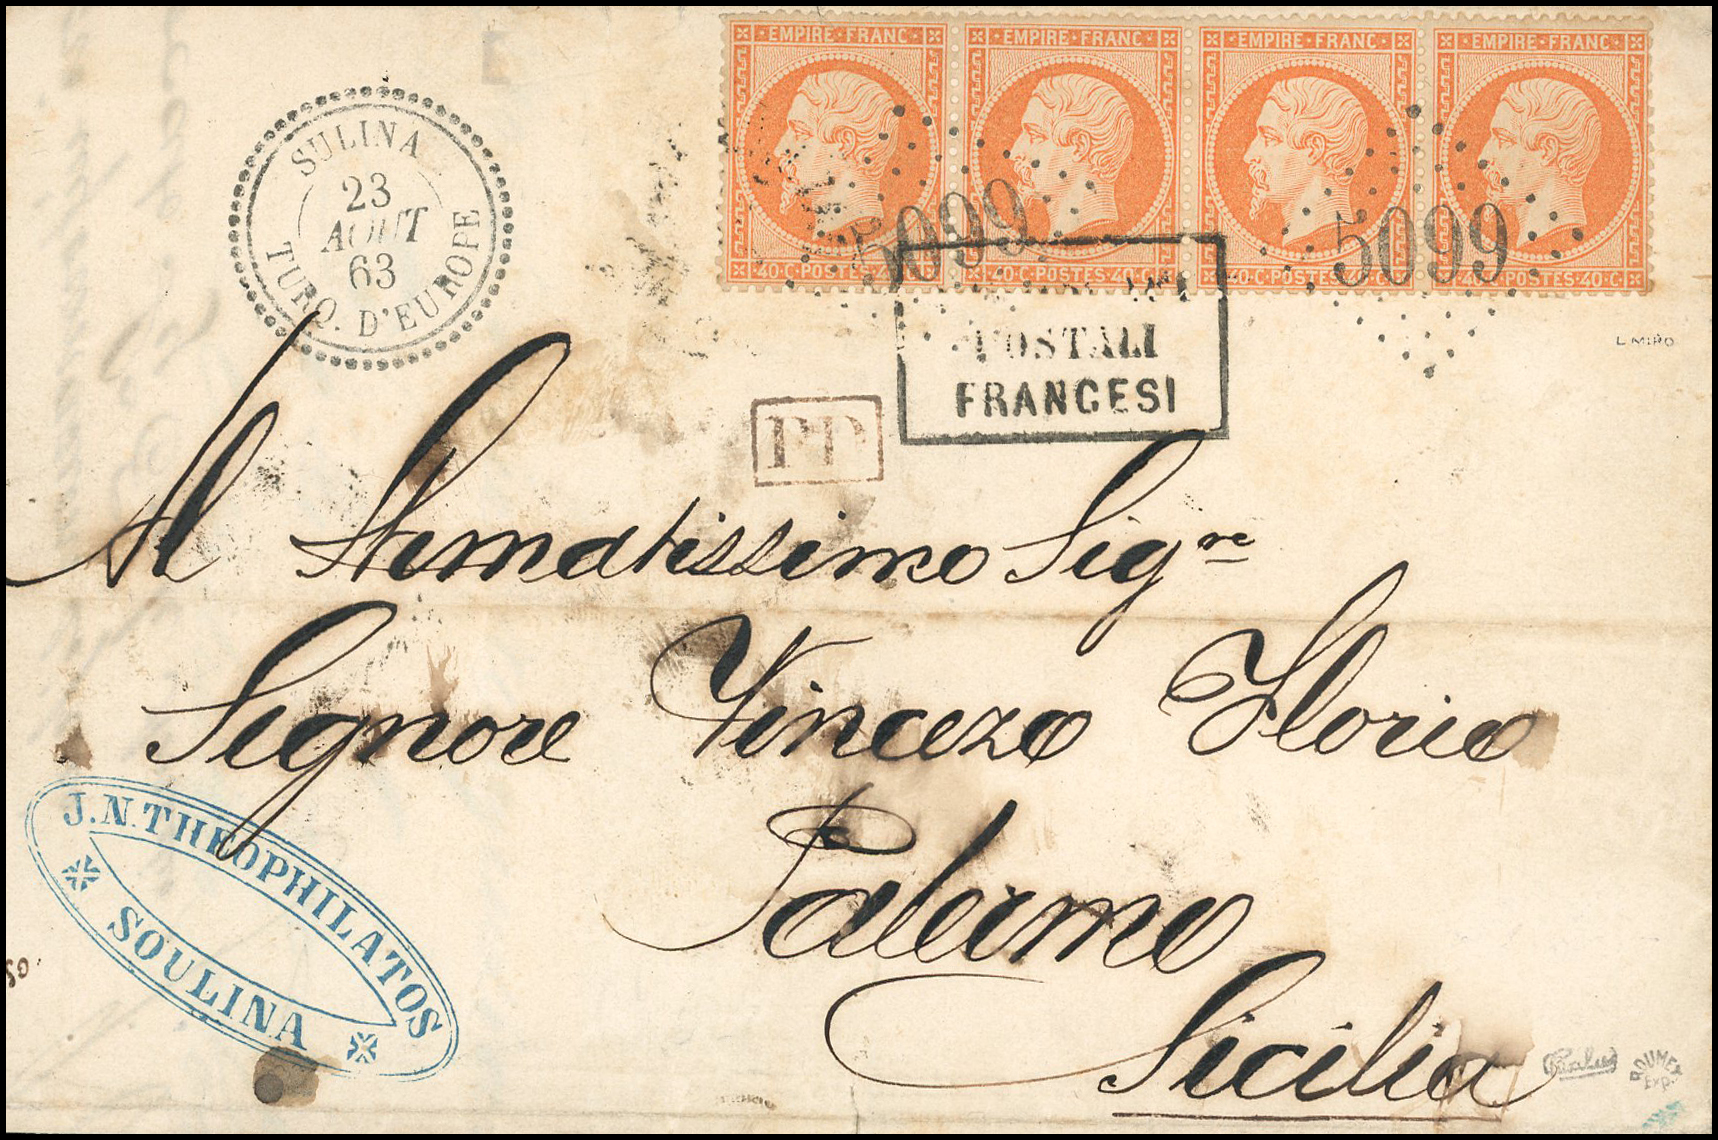 EMPIRE·FRANC· EMPIRE·FRANC· EMPIRE·FRANC· EMPIRE·FRANC·
40·C·POSTES·40·C· 40·C·POSTES·40·C· 40·C·POSTES·40·C· 40·C·POSTES·40·C·
5099 5099
SULINA
23
AOUT
63
TURQ. D'EUROPE
POSTALI
FRANCESI
L. MIRO
PP
Al Stematissimo Sigre
Signore Vincezo Florio
Palermo
Sicilia
J.N.THEOPHILATOS
SOULINA
ROUMET
EXP.